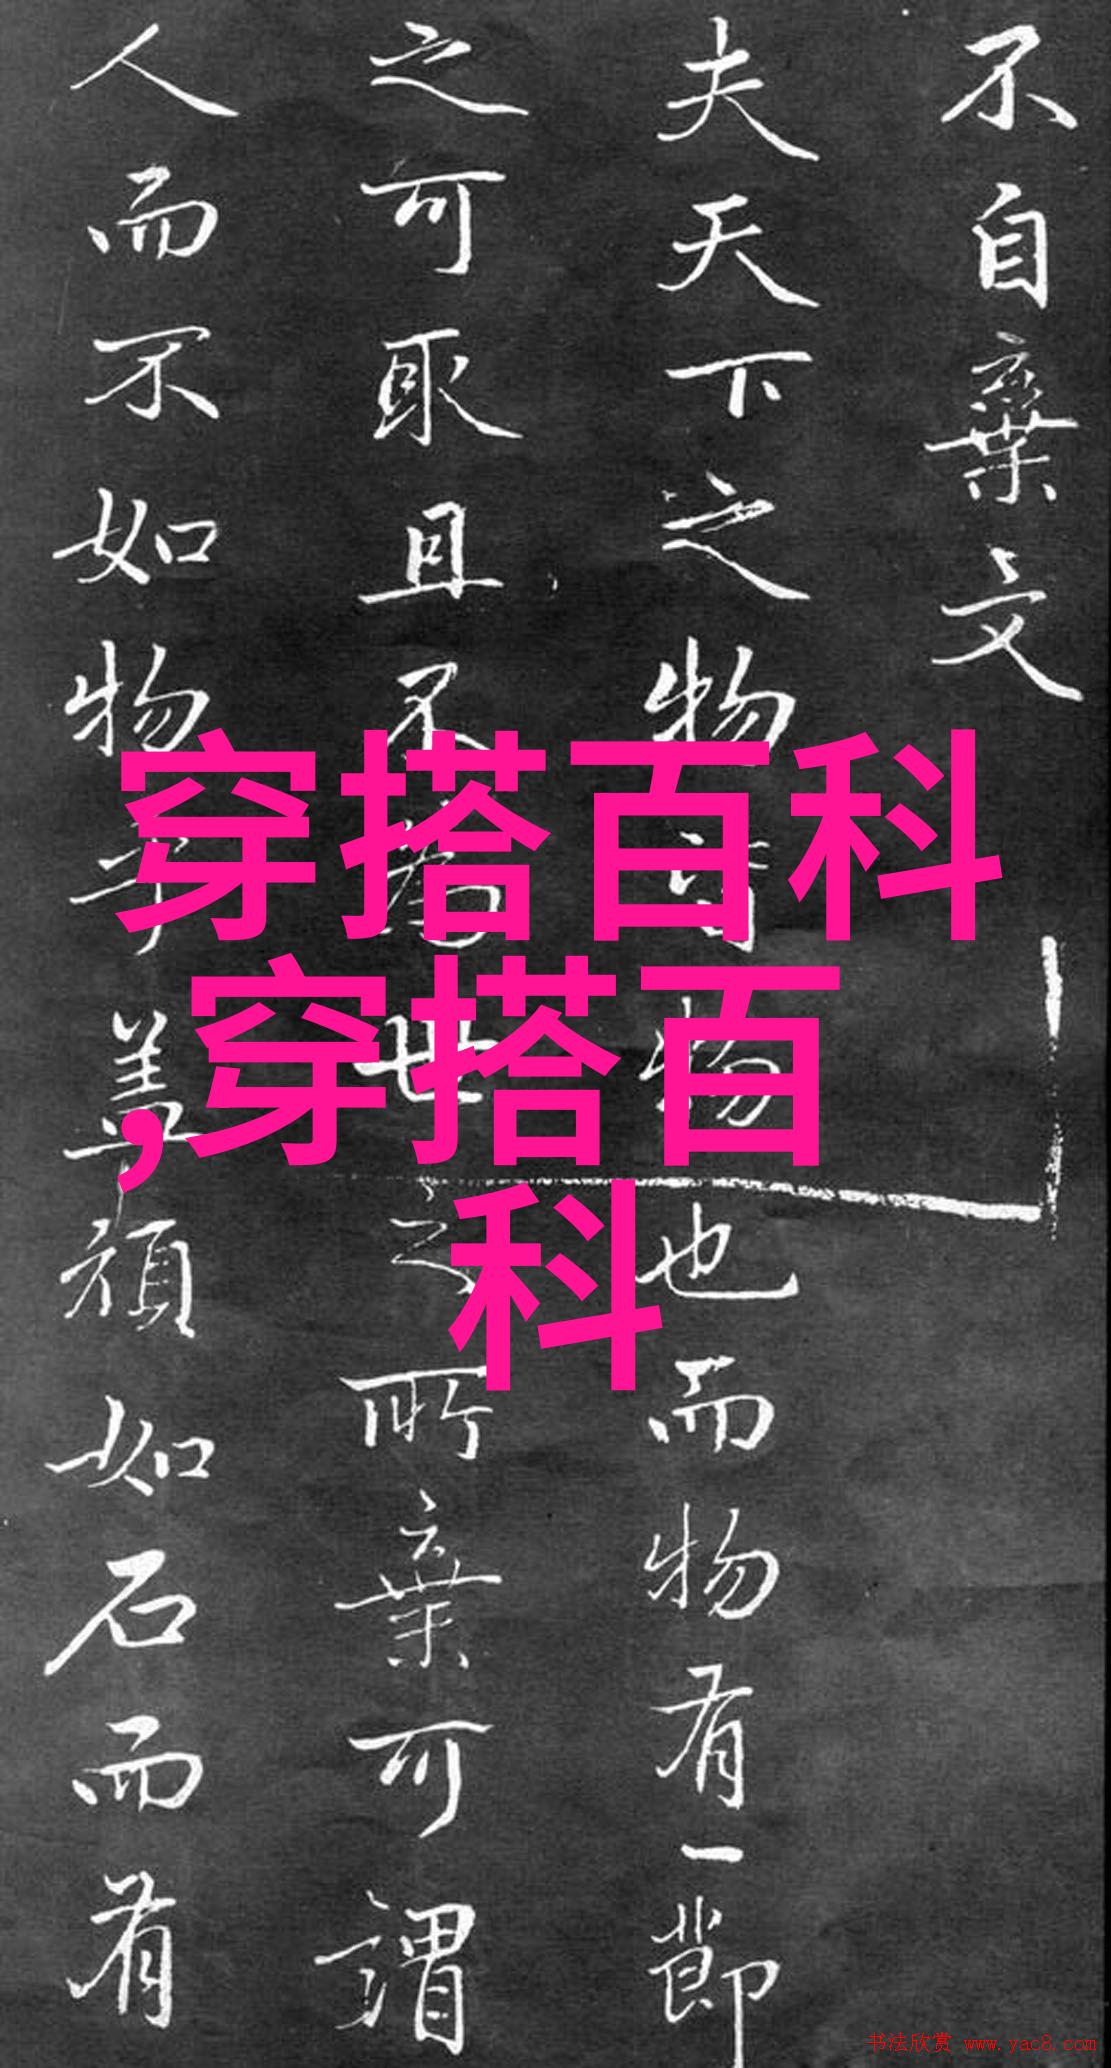 不自棄文
夫天下之物皆物也而物有一節
之可取且不為世之所棄可謂
人而不如物乎盖頑如石而有
穿搭百科
,穿搭百
科
书法欣赏 www.yac8.com